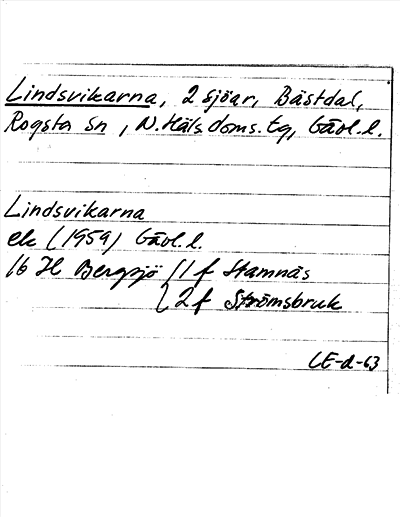 Lindsvikarna, 2 sjöar, Bästdal,
Rogsta sn, N. Häls. doms. tg, Gävl. l.
Lindsvikarna
ek (1959) Gävl. l.
16 H Bergsjö 1 f Stamnäs
2 f Strömsbruk
CE-d-63